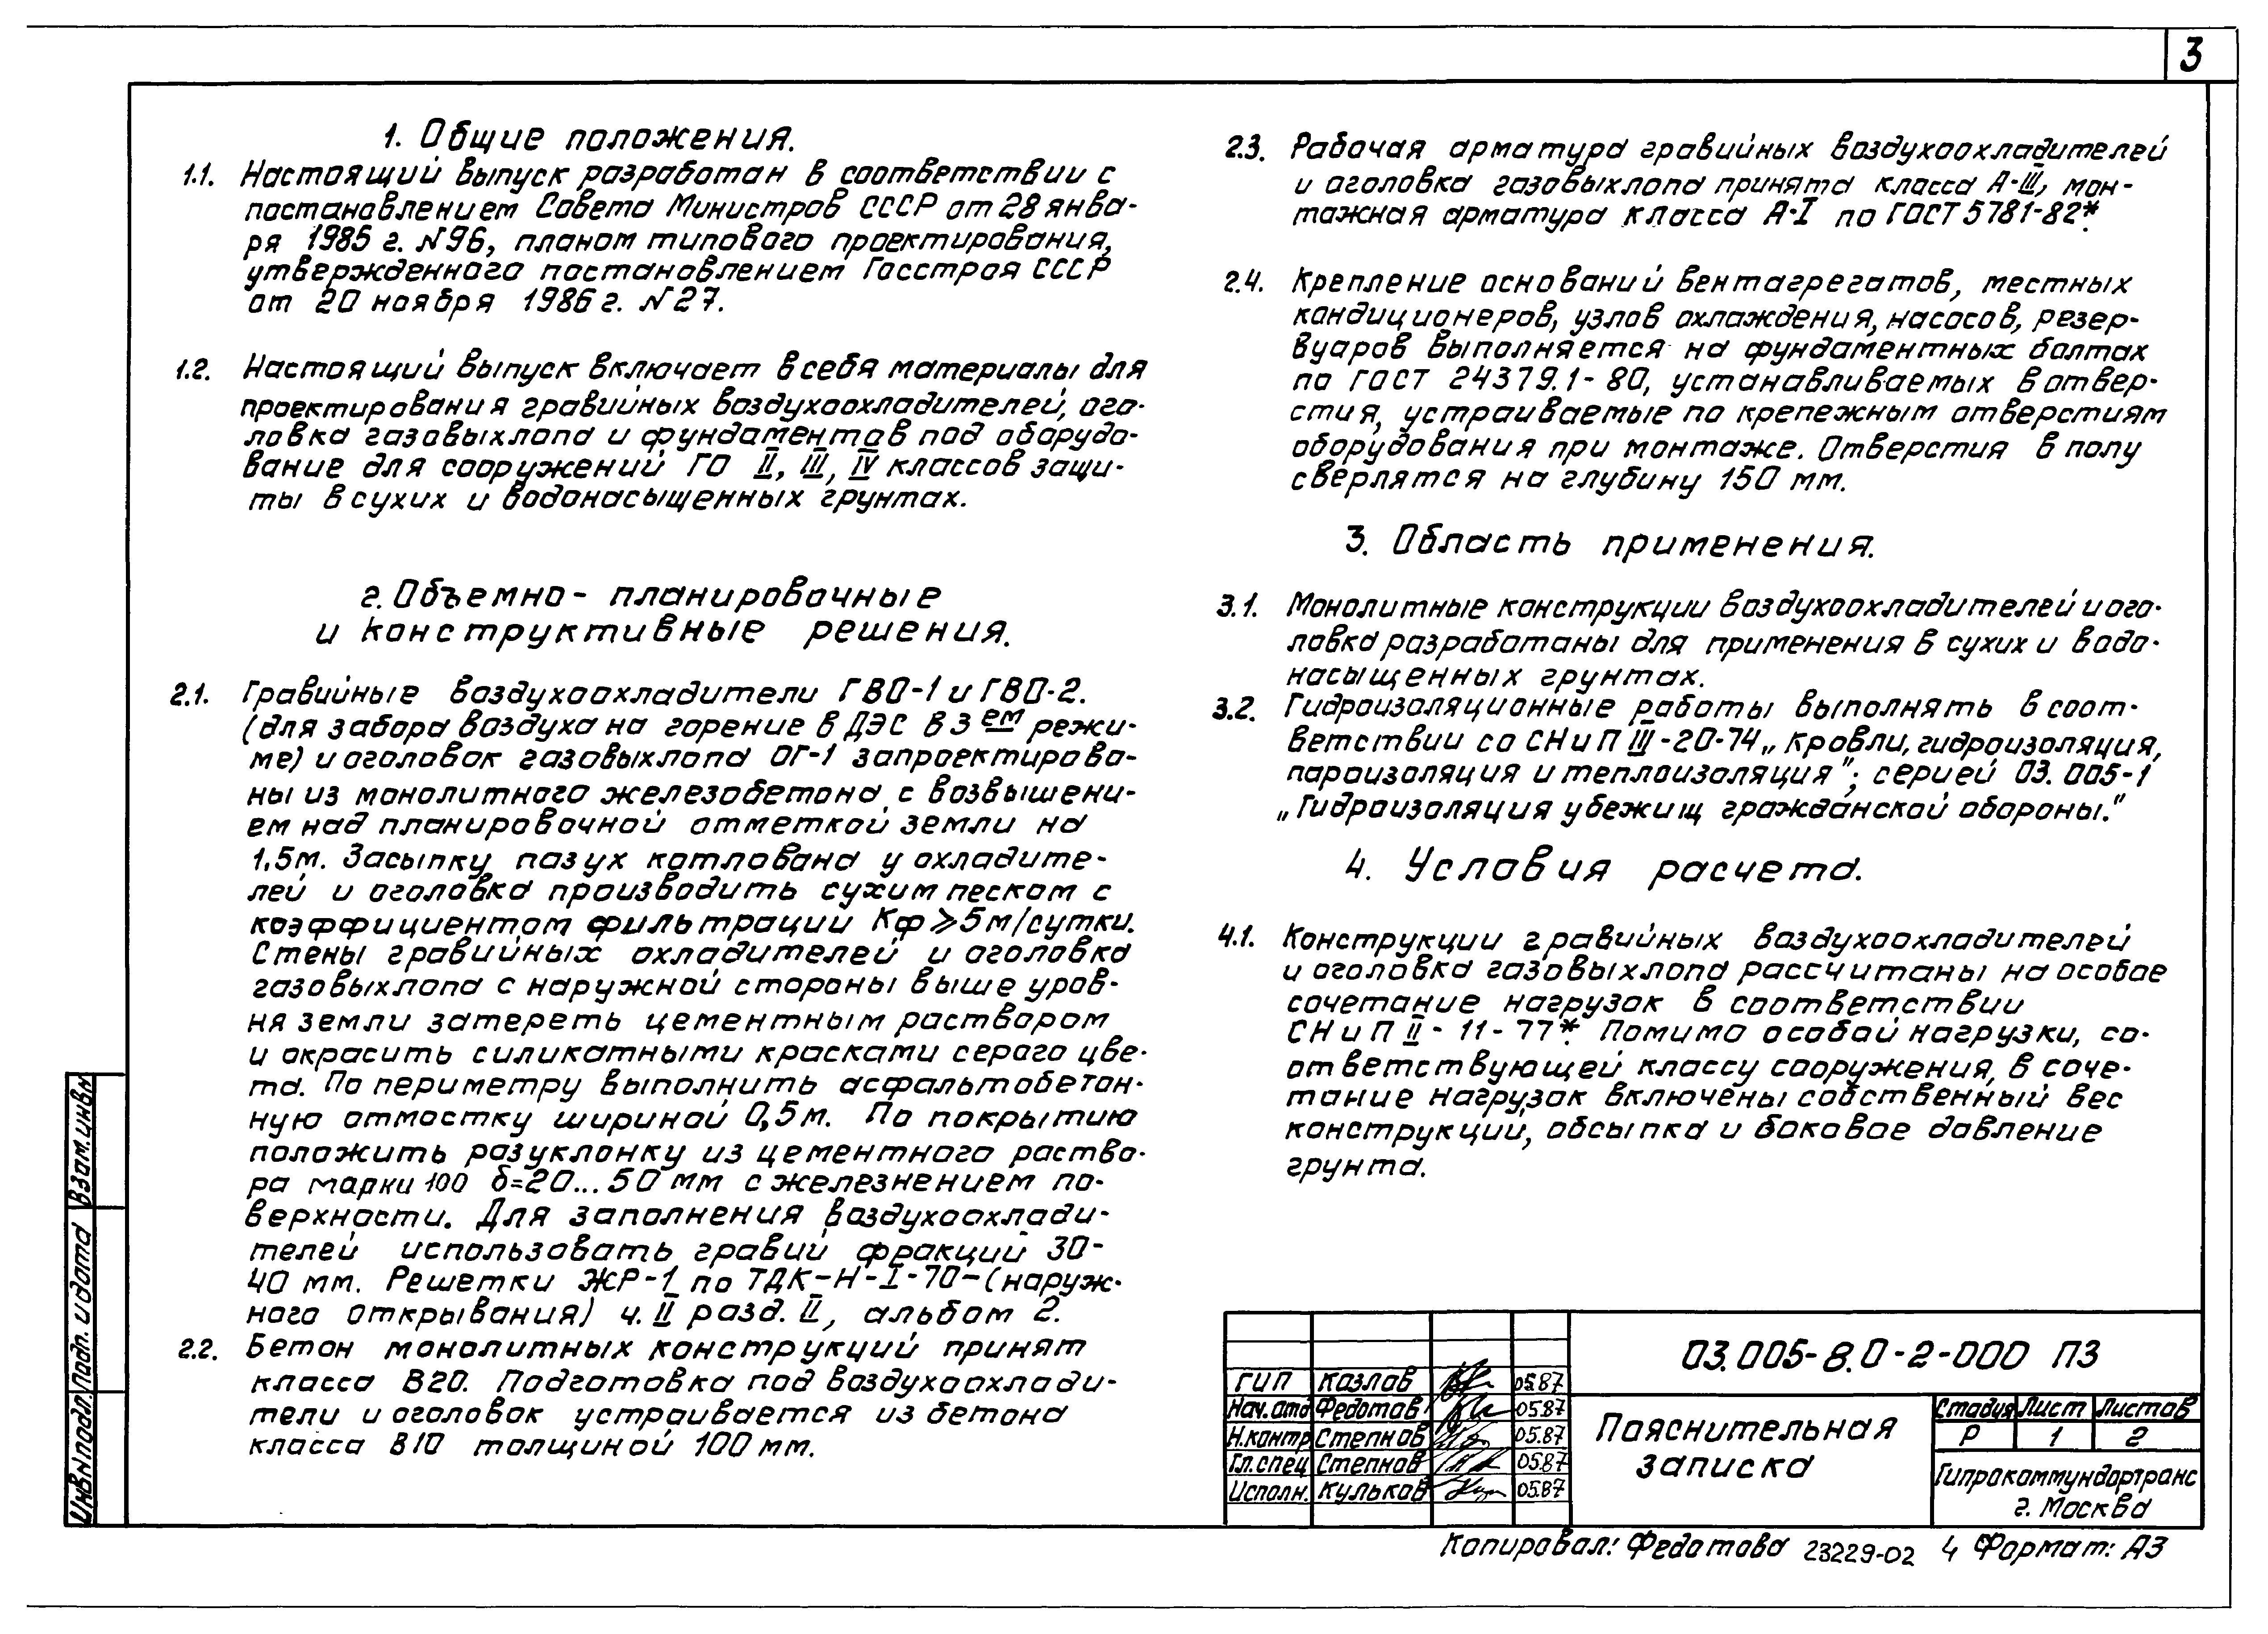 3
1. Общие положения.
1.1. Настоящий выпуск разработан в соответствии с
постановлением Совета Министров СССР от 28 янва-
ря 1985 г. №96, планом типового проектирования,
утвержденного постановлением Госстроя СССР
от 20 ноября 1986 г. №27.
1.2. Настоящий выпуск включает в себя материалы для
проектирования гравийных воздухоохладителей, ого-
ловка газовыхлопа и фундаментов под оборудо-
вание для сооружений ГО II, III, IV классов защи-
ты в сухих и водонасыщенных грунтах.
2. Объемно-планировочные
и конструктивные решения.
2.1. Гравийные воздухоохладители ГВО-1 и ГВО-2.
(для забора воздуха на горение в ДЭС в 3ем режи-
ме) и оголовок газовыхлопа ОГ-1 запроектирова-
ны из монолитного железобетона с возвышени-
ем над планировочной отметкой земли на
1,5м. Засыпку пазух котлована у охладите-
лей и оголовка производить сухим песком с
коэффициентом фильтрации Кф ⩾ 5 м/сутки.
Стены гравийных охладителей и оголовка
газовыхлопа с наружной стороны выше уров-
ня земли затереть цементным раствором
и окрасить силикатными красками серого цве-
та. По периметру выполнить асфальтобетон-
ную отмостку шириной 0,5м. По покрытию
положить разуклонку из цементного раство-
ра марки 100 δ=20...50 мм с железнением по-
верхности. Для заполнения воздухоохлади-
телей использовать гравий фракций 30-
40 мм. Решетки ЖР-1 по ТДК-Н-I-70-(наруж-
ного открывания) ч. II разд. II, альбом 2.
2.2. Бетон монолитных конструкций принят
класса В20. Подготовка под воздухоохлади-
тели и оголовок устраивается из бетона
класса В10 толщиной 100 мм.
2.3. Рабочая арматура гравийных воздухоохладителей
и оголовка газовыхлопа принята класса А-III, мон-
тажная арматура класса А-I по ГОСТ 5781-82*.
2.4. Крепление оснований вентагрегатов, местных
кондиционеров, узлов охлаждения, насосов, резер-
вуаров выполняется на фундаментных болтах
по ГОСТ 24379.1-80, устанавливаемых в отвер-
стия, устраиваемые по крепежным отверстиям
оборудования при монтаже. Отверстия в полу
сверлятся на глубину 150 мм.
3. Область применения.
3.1. Монолитные конструкции воздухоохладителей и ого-
ловка разработаны для применения в сухих и водо-
насыщенных грунтах.
3.2. Гидроизоляционные работы выполнять в соот-
ветствии со СНиП III-20-74 „Кровли, гидроизоляция,
пароизоляция и теплоизоляция"; серией 03.005-1
„Гидроизоляция убежищ гражданской обороны."
4. Условия расчета.
4.1. Конструкции гравийных воздухоохладителей
и оголовка газовыхлопа рассчитаны на особое
сочетание нагрузок в соответствии
СНиП II-11-77*. Помимо особой нагрузки, со-
ответствующей классу сооружения, в соче-
тание нагрузок включены собственный вес
конструкций, обсыпка и боковое давление
грунта.
Взам.инв№
Подп. и дата
Инв№подл.
03.005-8.0-2-000 ПЗ
ГИП Козлов 05.87
Нач.отд Федотов 05.87
Н.контр Степнов 05.87
Гл.спец Степнов 05.87
Исполн. Кульков 05.87
Пояснительная
записка
Стадия Лист Листов
Р 1 2
Гипрокоммундортранс
г. Москва
Копировал: Федотова 23229-02 4 Формат: А3